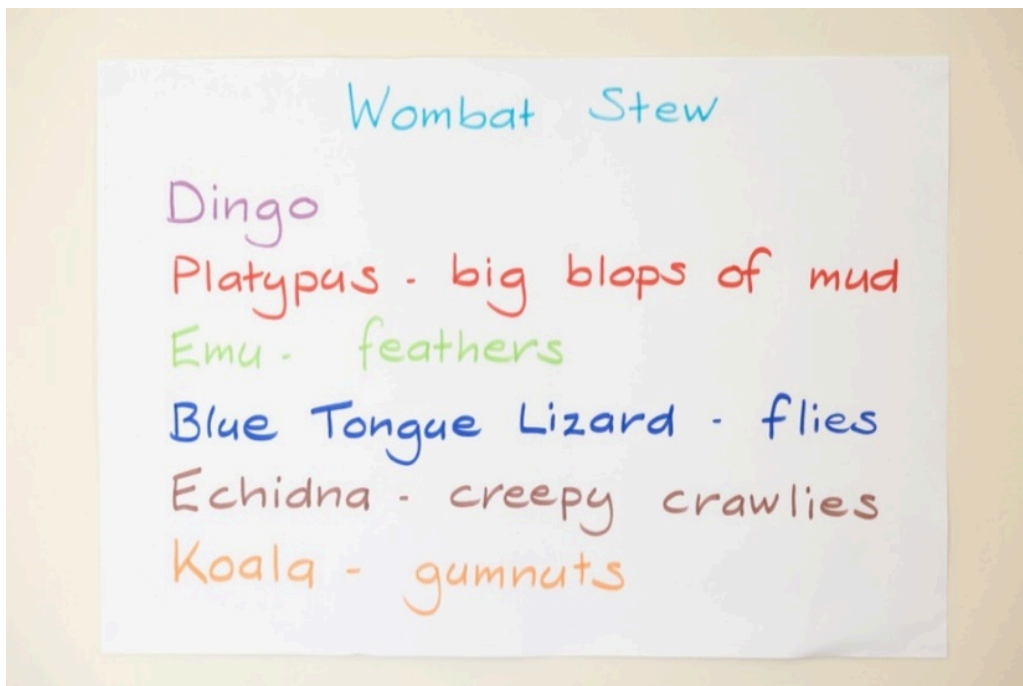 Wombat Stew
Dingo
Platypus - big blops of mud
Emu - feathers
Blue Tongue Lizard - flies
Echidna - creepy crawlies
Koala - gumnuts